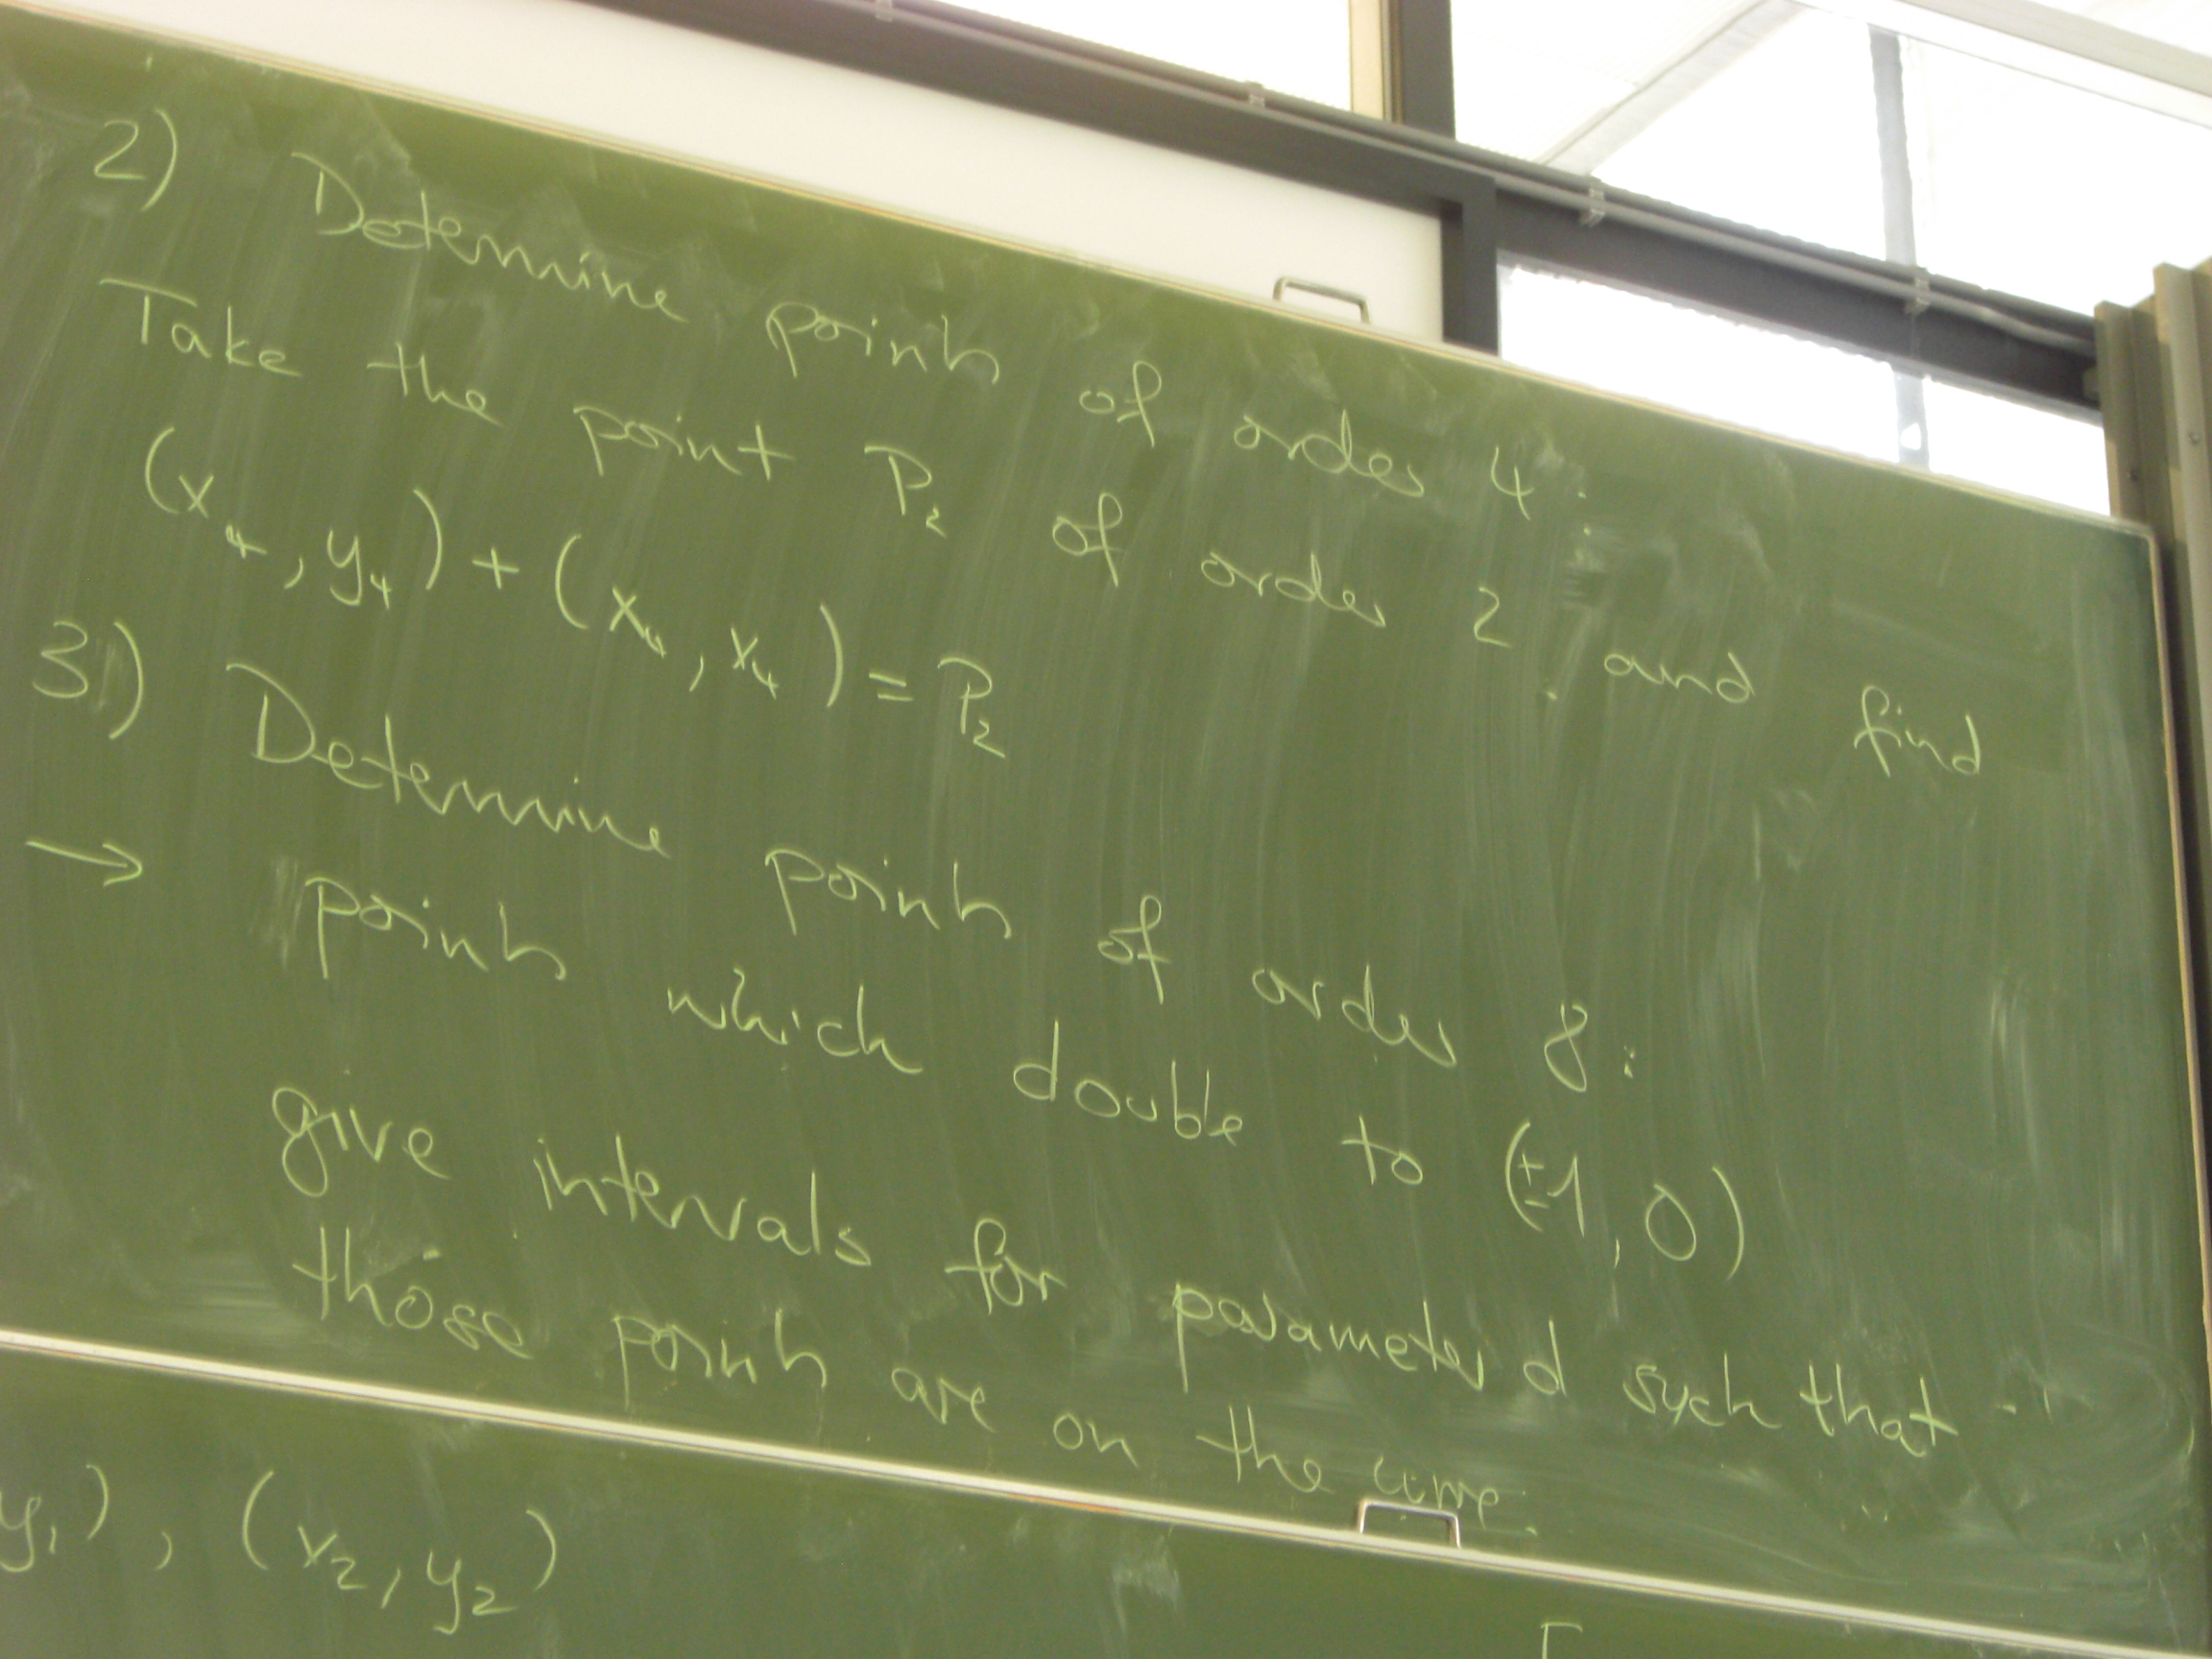 2) Determine points of order 4:
Take the point P₂ of order 2 and find
(x₄, y₄) + (x₄, x₄) = P₂
3) Determine points of order 8:
→ points which double to (±1, 0)
give intervals for parameter d such that
those points are on the curve.
y₁), (x₂, y₂)